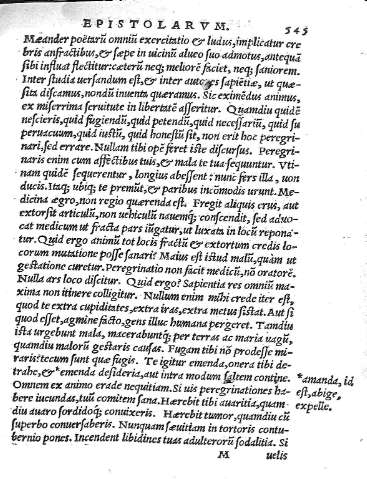 EPISTOLARVM. 545
Mæander poëtarũ omniũ exercitatio & ludus, implicatur cre
bris anfractibus, & sæpe in uicinũ alueo suo admotus, antequã
sibi influat flectitur: cæterũ neq; meliorẽ faciet, neq; saniorem.
Inter studia uersandum est, & inter autores sapiẽtiæ, ut quæ-
sita discamus, nondũ inuenta quæramus. Sic eximẽdus animus,
ex miserrima seruitute in libertatẽ asseritur. Quamdiu quidẽ
nescieris, quid fugiendũ, quid petendũ, quid necessariũ, quid su
peruacuum, quid iustũ, quid honestũ sit, non erit hoc peregri-
nari, sed errare. Nullam tibi opẽ feret iste discursus. Peregri-
naris enim cum affectibus tuis, & mala te tua sequuntur. Vti-
nam quidẽ sequerentur, longius abessent: nunc fers illa, non
ducis. Itaq; ubiq; te premũt, & paribus incõmodis urunt. Me-
dicina ægro, non regio quærenda est. Fregit aliquis crui, aut
extorsit articulũ, non uehiculũ nauemq; conscendit, sed aduo-
cat medicum ut fracta pars iũgatur, ut luxata in locũ repona-
tur. Quid ergo animũ tot locis fractũ & extortum credis lo-
corum mutatione posse sanari? Maius est istud malũ, quàm ut
gestatione curetur. Peregrinatio non facit medicũ, nõ oratorẽ.
Nulla ars loco discitur. Quid ergo? Sapientia res omniũ ma-
xima non itinere colligitur. Nullum enim mihi crede iter est,
quod te extra cupiditates, extra iras, extra metus sistat. Aut si
quod esset, agmine facto, gens illuc humana pergeret. Tandiu
ista urgebunt mala, macerabuntq; per terras ac maria uagũ,
quamdiu malorũ gestaris causas. Fugam tibi nõ prodesse mi-
raris? tecum sunt quæ fugis. Te igitur emenda, onera tibi de-
trahe, & *emenda desideria, aut intra modum saltem contine. *amanda, id
Omnem ex animo erade nequitiam. Si uis peregrinationes ha- est, abige,
bere iucundas, tuũ comitem sana. Hærebit tibi auaritia, quam- expelle.
diu auaro sordidoq; conuixeris. Hærebit tumor, quamdiu cũ
superbo conuersaberis. Nunquam sæuitiam in tortoris contu-
bernio pones. Incendent libidines tuas adulterorũ sodalitia. Si
M uelis